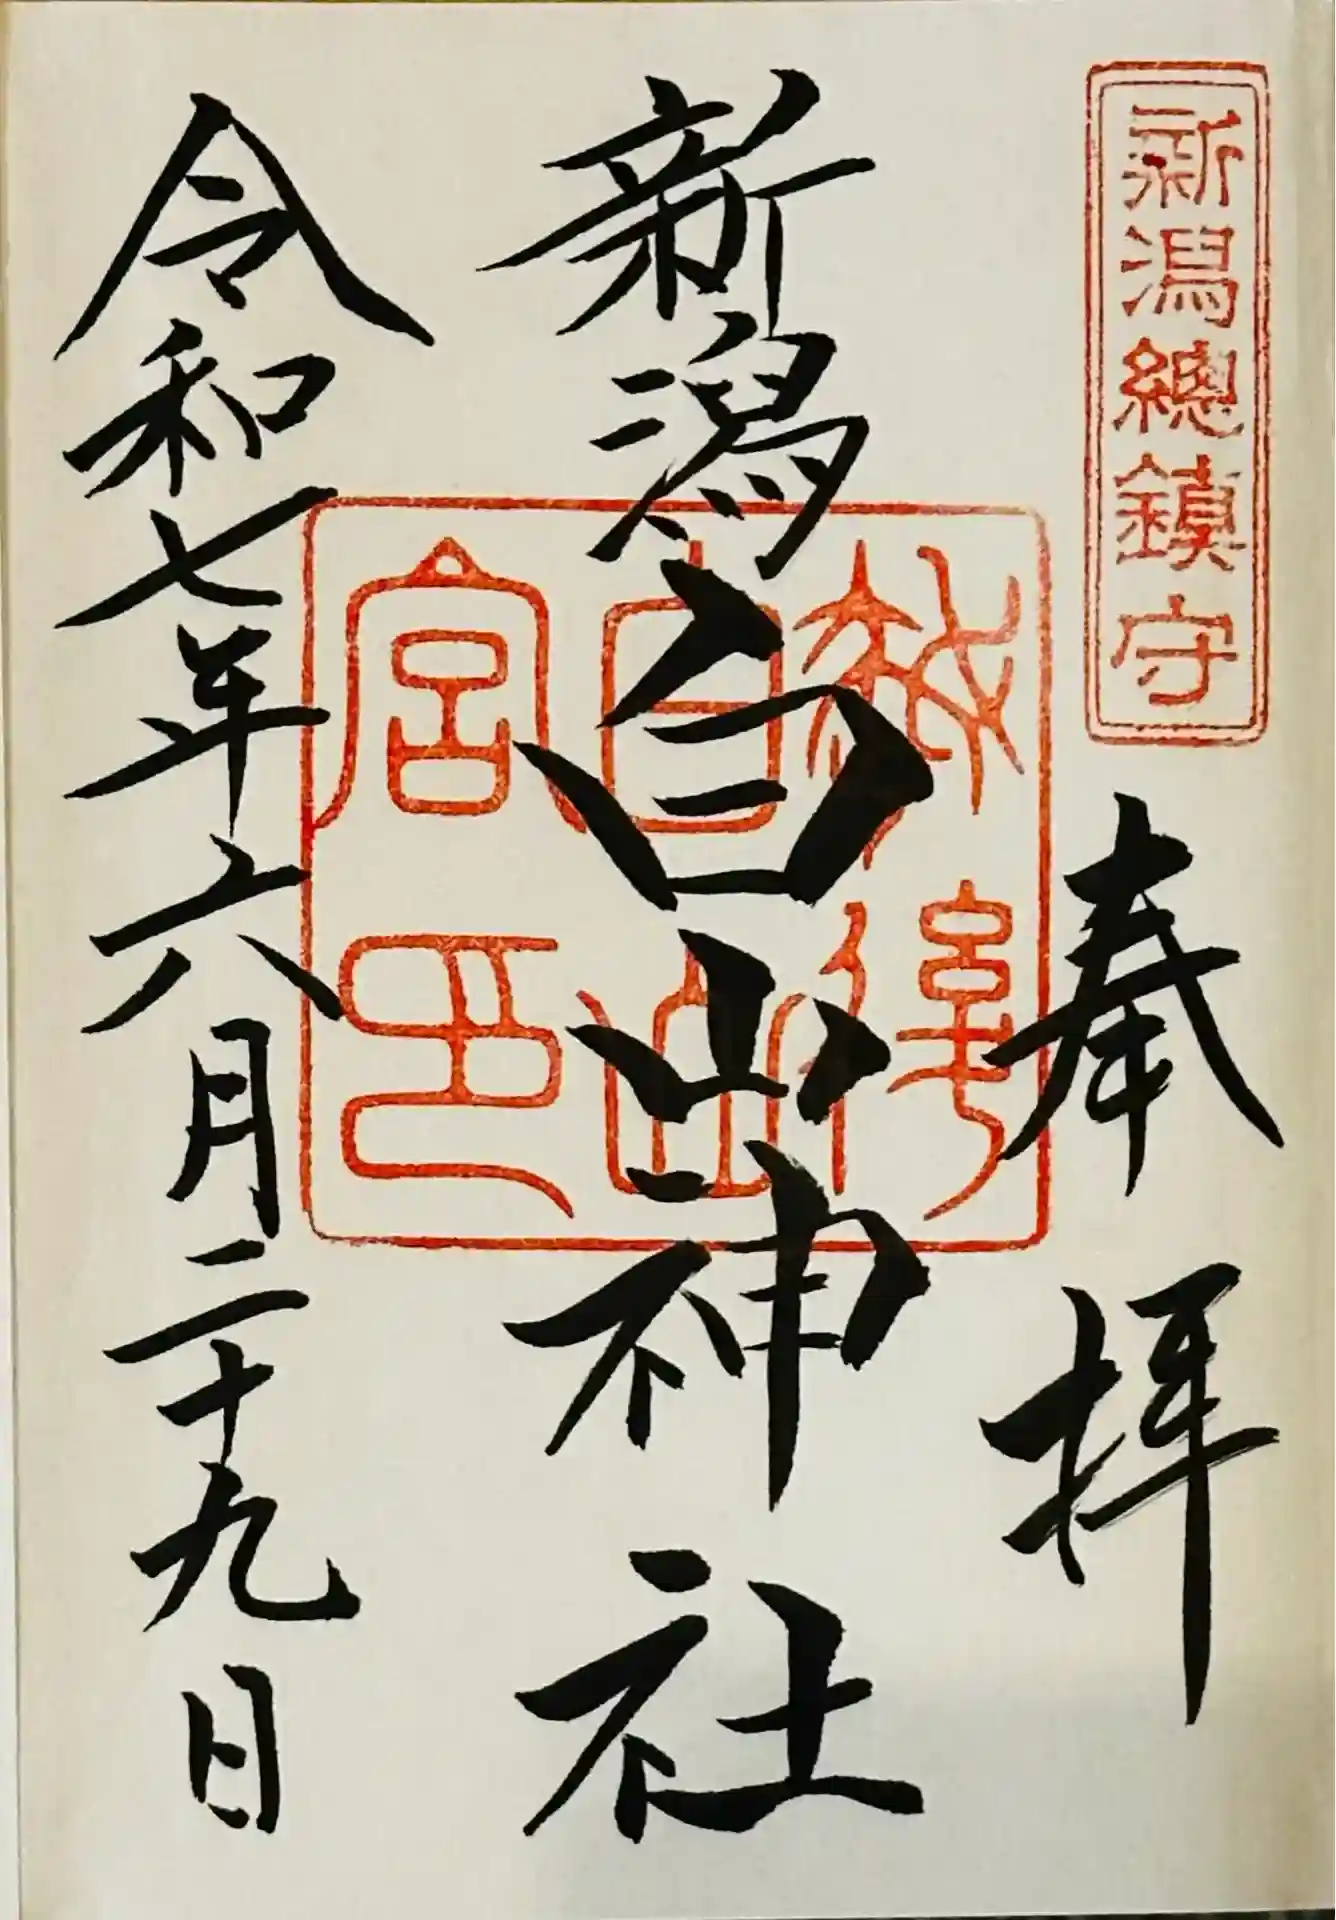 新潟總鎮守
奉拝
新潟白山神社
越後
白山
宮印
令和七年六月二十九日